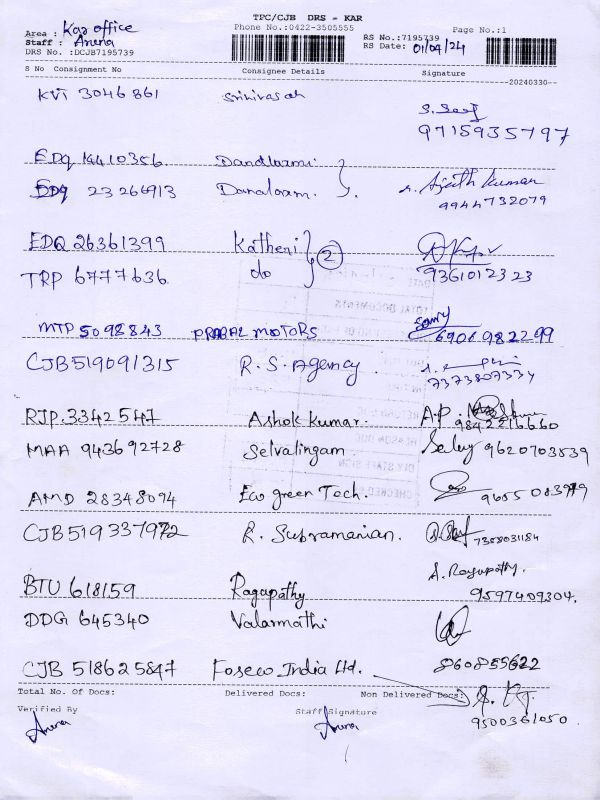 TPC/CJB DRS - KAR
Phone No.:0422-3505555
Area : Kar office
Staff : Aruna
DRS No. :DCJB7195739
RS No.:7195739
RS Date: 01/04/24
Page No.:1
S No Consignment No Consignee Details Signature
20240330
KVT 3046861 Srinivasan
9715935797
EDQ 14410356 Dandlaxmi
EDQ 23264913 Danalaxm. Ajith Kumar
9944732079
EDQ 26361399 Katheri 2
TRP 6777636 do 9361012323
MTP 5098843 PRABAL MOTORS 6906982299
CJB519091315 R.S. Agency
7373807334
RJP.3342547 Ashok kumar. A.P.
9842216660
MAA 943692728 Selvalingam 9620703539
AMD 28348094 Eco green Tech.
CJB519337972 R. Subramanian. 7358031184
BTU 618159 Ragapathy A. Ragupathy.
9597409304.
DDG 645340 Valarmathi
CJB 518625847 Foseco India Ltd. 860855622
Total No. Of Docs: Delivered Docs: Non Delivered Docs:
9500361050
Verified By Staff Signature
Aruna Aruna